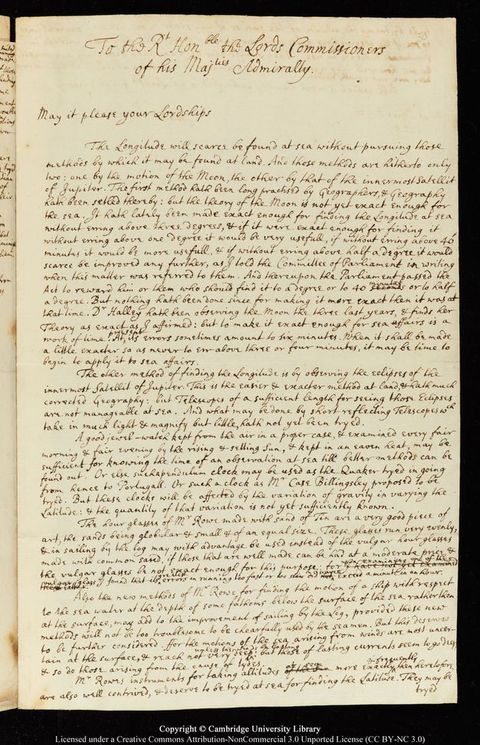 To the Rt Honble the Lords Commissioners
of his Majties Admiralty.
May it please your Lordships
The Longitude will scarce be found at sea without pursuing those
methods by which it may be found at land. And those methods are hitherto only
two: one by the motion of the Moon, the other by that of the innermost Satellit
of Jupiter. The first method hath been long practised by Geographers, & Geography
hath been setled thereby: but the theory of the Moon is not yet exact enough for
the sea. It hath lately been made exact enough for finding the Longitude at sea
without erring above three degrees, & if it were exact enough for finding it
without erring above one degree it would be very usefull, if without erring above 40
minutes it would be more usefull, & if without erring above half a degree it would
scarce be improved any further, as I told the Committee of Parliament in writing
when this matter was referred to them. And thereupon the Parliament passed the
Act to reward him or them who should find it to a degree or to 40 minutes or to half
a degree. But nothing hath been done since for making it more exact then it was at
that time. Dr Halley hath been observing the Moon the three last years, & finds her
Theory as exact as I affirmed: but to make it exact enough for sea affairs is a
work of time. At present its errors sometimes amount to six minutes. When it shall be made
a little exacter so as never to err above three or four minutes, it may be time to
begin to apply it to sea affairs.
The other method of finding the Longitude is by observing the eclipses of the
innermost Satellit of Jupiter. This is the easier & exacter method at land, & hath much
corrected Geography: but Telescopes of a sufficient length for seeing those Eclipses
are not manageable at sea. And what may be done by short reflecting Telescopes wch
take in much light & magnify but little, hath not yet been tried.
A good jewel-watch kept from the air in a proper case, & examined every fair
morning & fair evening by the rising & setting Sun, & kept in an eaven heat, may be
sufficient for knowing the time of an observation at sea till better methods can be
found out. Or else such a pendulum clock may be used as the Quaker tryed in going
from hence to Portugall. Or such a clock as Mr Case Billingsley proposed to be
tryed. But these clocks will be affected by the variation of gravity in varying the
Latitude: & the quantity of that variation is not yet sufficiently known.
The hour glasses of Mr Rowe made with sand of Tin are a very good piece of
art, the sands being globular & small & of an equal size. These glasses run very evenly,
& in sailing by the log may with advantage be used instead of the vulgar hour glasses
made with common sand, if those that are well made can be had at a moderate price, &
the vulgar glasses be not exact enough for this purpose:
I found that its errors in running too fast or too slow did not exceed a minute in an hour.
Also the new methods of Mr Rowe for finding the motion of a ship with respect
to the sea water at the depth of some fathoms below the surface of the sea rather then
at the surface, may tend to the improvement of sailing by the log, provided these new
methods will not be too troublesome to be chearfully used by the seamen. But this deserves
to be further considered. ffor the motions of the sea arising from winds are most uncer-
tain at the surface, & reach not very deep, but those of lasting currents seem to go deep,
& so do those arising from the cause of tydes.
Mr Rowes instruments for taking altitudes more exactly then heretofore,
are also well contrived, & deserve to be tryed at sea for finding the Latitude. They may be
tryed
Copyright © Cambridge University Library
Licensed under a Creative Commons Attribution-NonCommercial 3.0 Unported License (CC BY-NC 3.0)